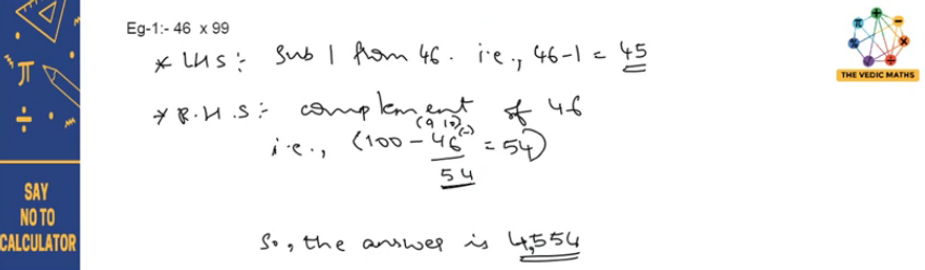 Eg-1:- 46 x 99
* LHS :- Sub 1 from 46. i.e., 46-1 = 45
* R.H.S :- complement of 46
(9 10)
i.e., (100 - 46 (-) = 54)
54
So, the answer is 4,554
SAY
NO TO
CALCULATOR
THE VEDIC MATHS